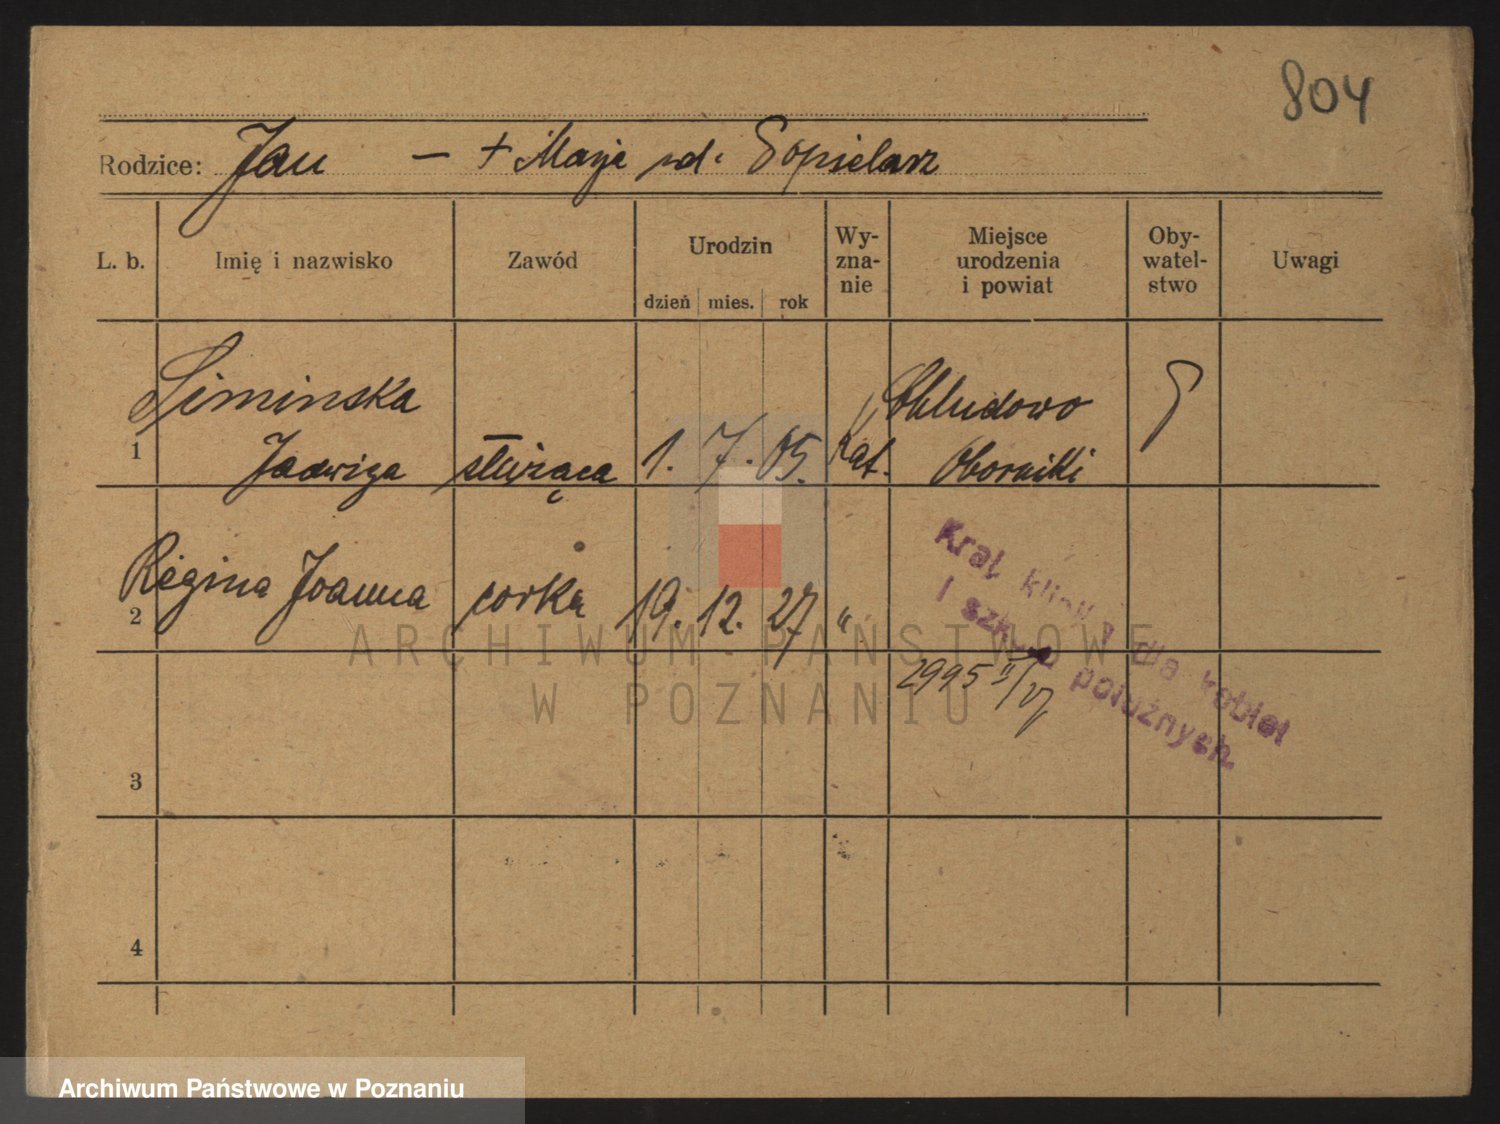 804
Rodzice: Jan — + Marje
L. b. Imię i nazwisko Zawód Urodzin dzień mies. rok Wy- zna- nie Miejsce urodzenia i powiat Oby- watel- stwo Uwagi
Siminska
1 Jadwiga służąca 1. 7. 05. Kat. Oborniki
2 Regina Joanna corka 19. 12. 27 "
Kraj. dla kobiet
i położnych.
2995 II/27
3
4
ARCHIWUM PAŃSTWOWE
W POZNANIU
Archiwum Państwowe w Poznaniu